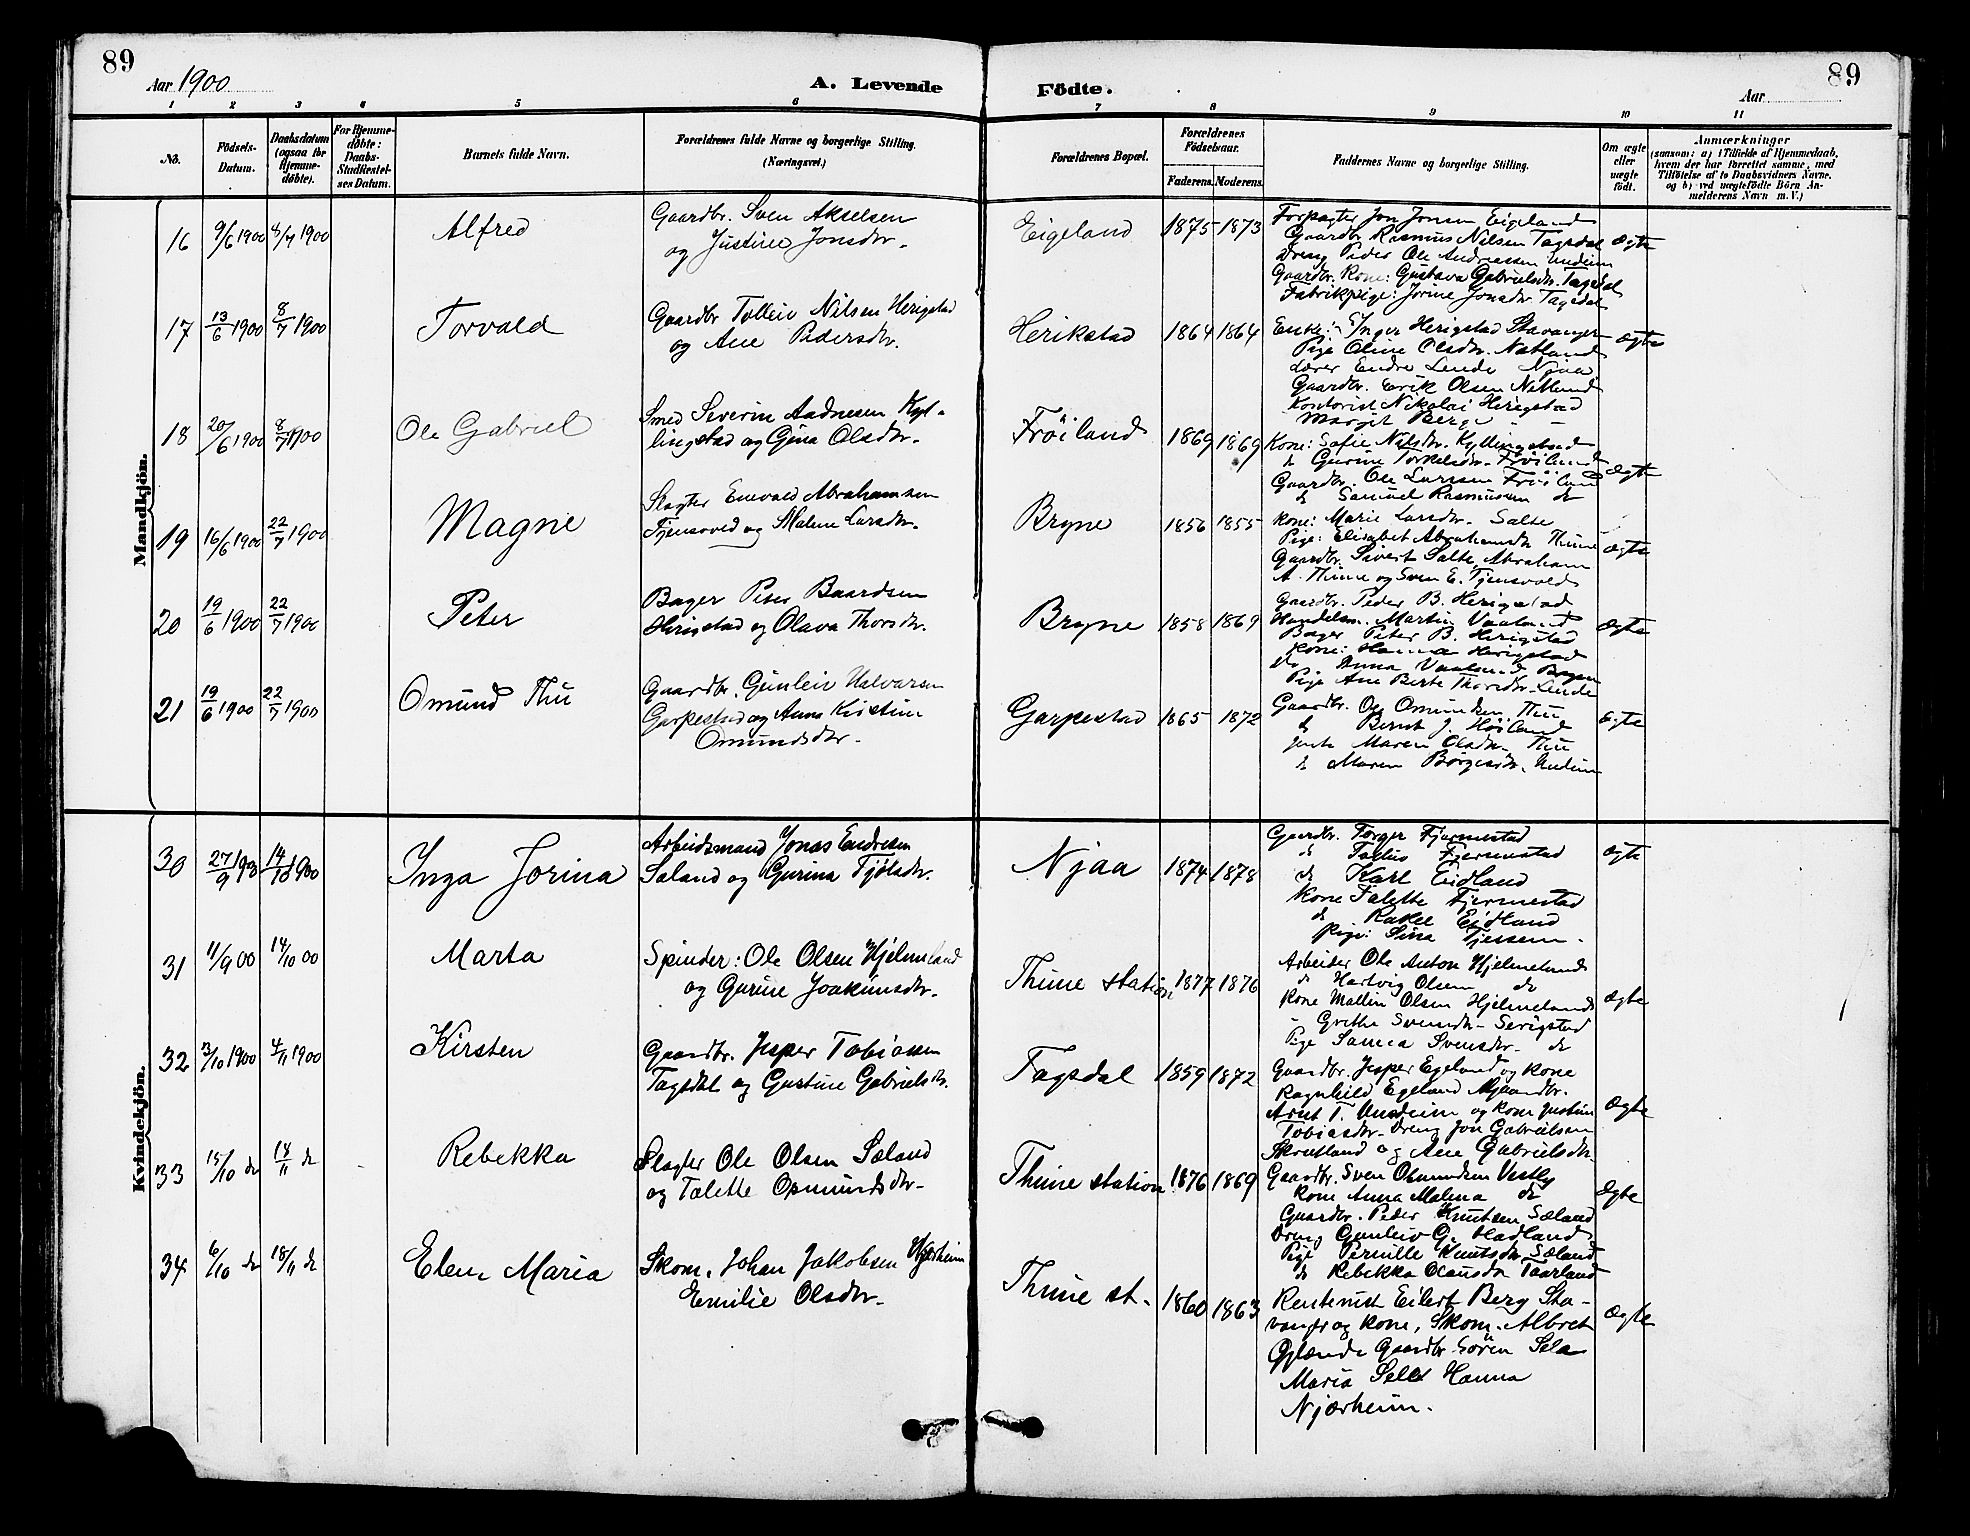 89
Aar 1900
A. Levende
Födte.
Aar
89
1 2 3 4 5 6 7 8 9 10 11
No.
Födsels-
Datum.
Daabsdatum
(ogsaa for
Hjemme-
döbte).
For Hjemme-
döbte:
Daabs-
Stadfæstel-
ses Datum.
Barnets fulde Navn.
Forældrenes fulde Navne og borgerlige Stilling.
(Næringsvei.)
Forældrenes Bopæl.
Forældrenes
Födselsaar.
Faderens. Moderens.
Faddernes Navne og borgerlige Stilling.
Om ægte
eller
uægte
födt.
Anmærkninger
(saasom: a) i Tilfælde af Hjemmedaab,
hvem der har forrettet samme, med
Tilföielse af to Daabsvidners Navne,
og b) ved uægtefödte Börn An-
melderens Navn m. V.)
Mandkjön.
16 9/6 1900 8/7 1900 Alfred
Gaardbr. Sven Akselsen
og Justine Jonsdtr.
Eigeland 1875 1873
Forpagter Jon Jonsen Eigeland
Gaardbr Rasmus Nilsen Tagsdal
Dreng Peder Ole Andreassen Undeim
Gaardbr. Kone: Gustava Gabrielsdtr. Tagsdal
Fabrikpige: Jorine Jonsdtr Tagsdal
Ægte
17 13/6 1900 8/7 1900 Torvald
Gaardbr Tolleiv Nilsen Herigstad
og Ane Pedersdtr.
Herikstad 1864 1864
Enke: Inger Herigstad Stavanger
Pige Oline Olsdtr. Natland
Lærer Endre Lende Njaa
Gaardbr. Erik Olsen Netland
Kontorist Nikolai Herigstad
Margit Berge
ægte
18 20/6 1900 8/7 1900 Ole Gabriel
Smed Severin Aadnesen Kyl-
lingstad og Gina Olsdtr.
Fröiland 1869 1869
Kone: Sofie Nilsdtr. Kyllingstad
do Gurine Torkelsdtr. Fröiland
Gaardbr. Ole Larssen Fröiland
do Samuel Rasmussen do
Ægte
19 16/6 1900 22/7 1900 Magne
Slagter Enevald Abrahamsen
Tjensvold og Malene Larsdtr.
Bryne 1856 1855
Kone: Marie Larsdtr. Salte
Pige: Elisabet Abrahamsdtr Thime
Gaardbr. Sivert Salte, Abraham
A. Thime og Sven E. Tjensvold
Ægte
20 19/6 1900 22/7 1900 Peter
Bager Peter Baardsen
Herigstad og Olava Thorsdtr.
Bryne 1858 1869
Gaardbr. Peder B. Herigstad
Handelsm. Martin Vaaland
Bager Peter B. Herigstad
Kone: Hanna Herigstad
do Anna Vaaland Bryne
Pige Ane Berte Thorsdtr. Lende
Ægte
21 19/6 1900 22/7 1900 Omund Thu
Gaardbr. Gunleiv Halvorsen
Garpestad og Anna Kirstine
Omundsdtr.
Garpestad 1865 1872
Gaardbr. Ole Omundsen Thu
do Bernt J. Höiland
Jente Maren Olsdtr. Thu
do Maren Börgesdtr. Undeim
Ægte
Kvindekjön.
30 27/9 1900 14/10 1900 Inga Jorina
Arbeidsmand Jonas Endresen
Saland og Gurina Tjölsdtr.
Njaa 1874 1878
Gaardbr. Torger Fjermestad
do Fjermestad
do Karl Eidland
Kone Talette Fjermestad
do Rakel Eidland
Pige: Sina Tjessem.
ægte
31 11/9 00 14/10 00 Marta
Spinder: Ole Olsen Hjelmeland
og Gurine Joakimsdtr.
Thime station 1877 1876
Arbeider Ole Anton Hjelmeland
do Hartvig Olsen do
Kone Mallin Olsen Hjelmeland
" Grethe Svendtr. Serigstad
Pige Samea Svensdtr. do
Ægte
32 3/10 1900 4/11 1900 Kirsten
Gaardbr. Jesper Tobiassen
Tagsdal og Gustine Gabrielsdtr.
Tagsdal 1859 1872
Gaardbr. Jesper Egeland og Kone
Ragnhild Egeland Gaardbr.
Arnt T. Undeim og Kone Justine
Tobiasdtr. Dreng Jon Gabrielsen
Skretland og Ane Gabrielsdtr.
Ægte
33 15/10 do 18/11 do Rebekka
Slagter Ole Olsen Sæland
og Talette Osmundsdtr.
Thime station 1876 1869
Gaardbr. Sven Osmundsen Vestly
Kone Anna Malena do
Gaardbr. Peder Knutsen Sæland
Dreng Gunleiv G. Hadland
Pige Pernille Knutsdtr. Sæland
do Rebekka Olausdtr Taarland
Ægte
34 6/10 do 18/11 do Elen Maria
Skom. Johan Jakobsen Njærheim
Emilie Olsdtr.
Thime st. 1860 1863
Rentenist Eilert Berg Sta-
vanger og Kone, Skom. Albret
Gaardbr. Sören Sela
Maria Sela Hanna
Njærheim.
Ægte